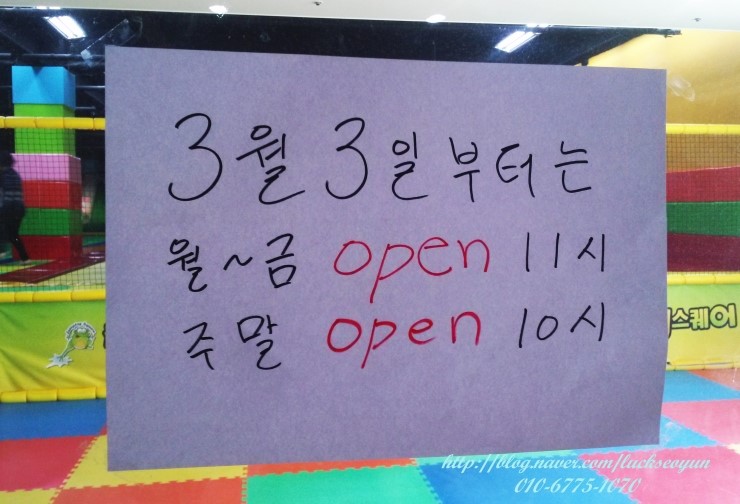 3월 3일부터는
월~금 open 11시
주말 open 10시
스퀘어
http://blog.naver.com/luckseoyun
010-6775-1070